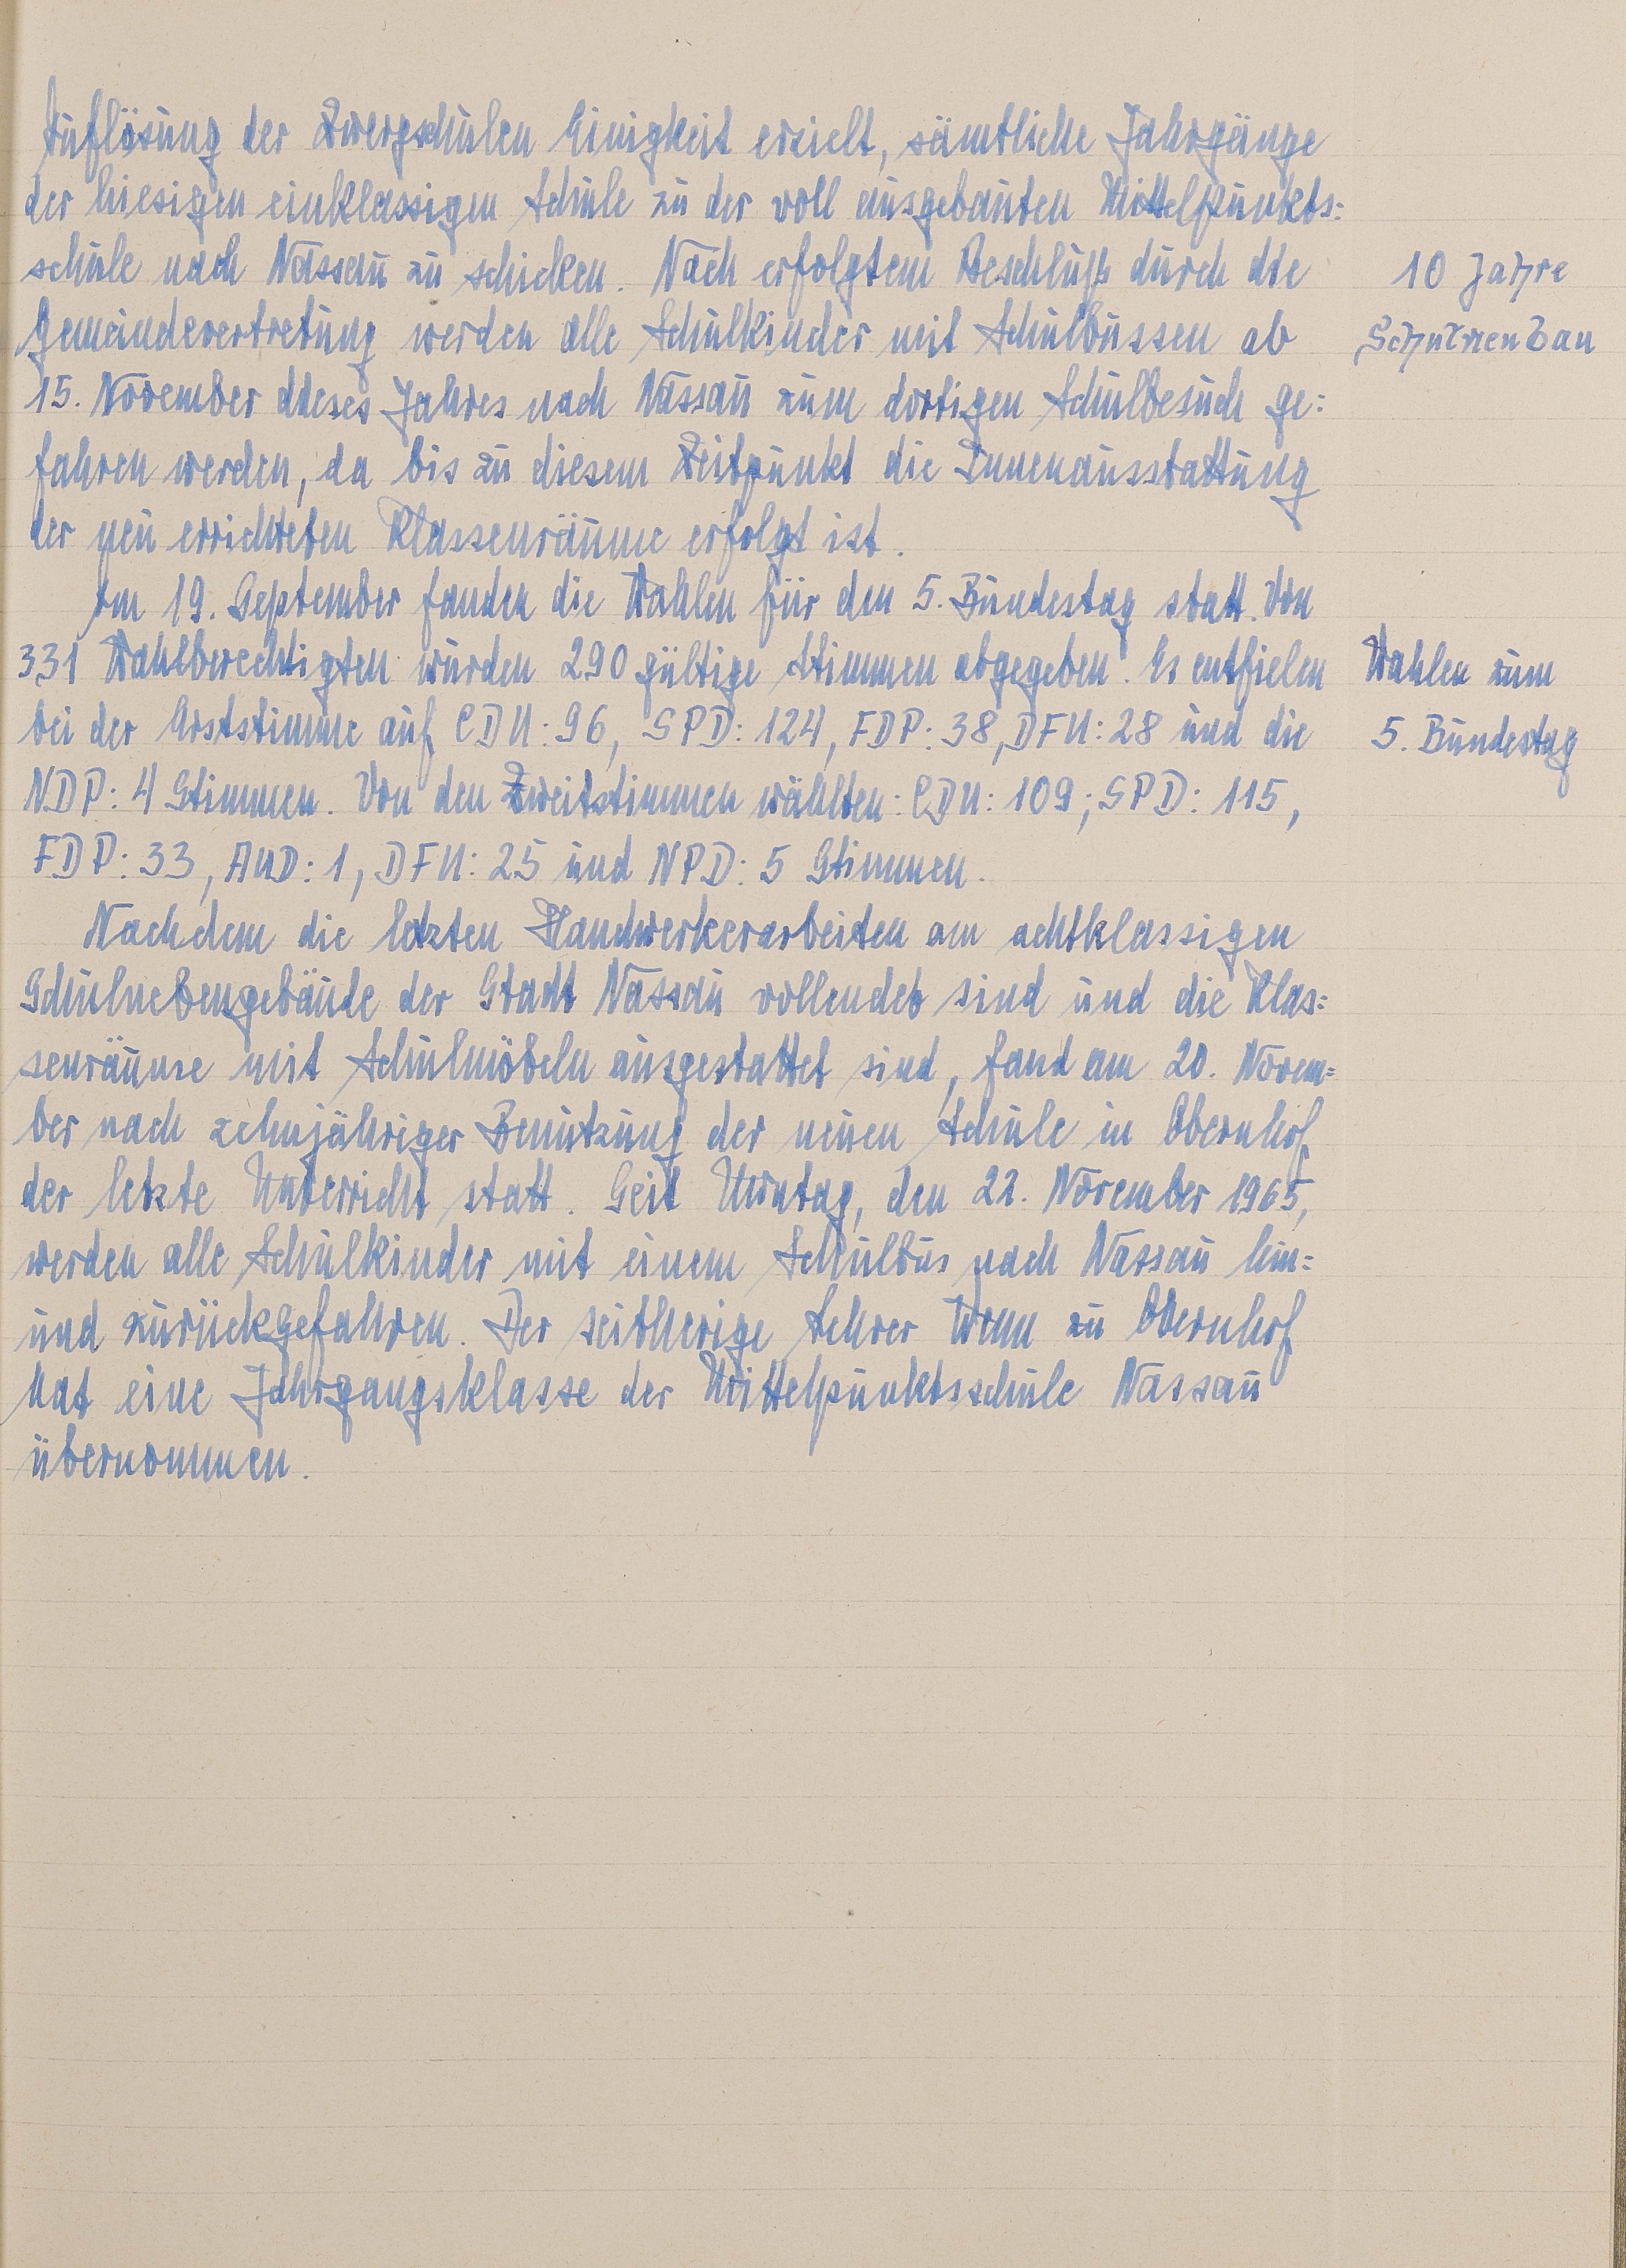 Auflösung der Zwergschulen Einigkeit erzielt, sämtliche Jahrgänge
der hiesigen einklassigen Schule zu der voll ausgebauten Mittelpunkts=
schule nach Nassau zu schicken. Nach erfolgtem Beschluß durch die
Gemeindevertretung werden alle Schulkinder mit Schulbussen ab
15. November dieses Jahres nach Nassau zum dortigen Schulbesuch ge=
fahren werden, da bis zu diesem Zeitpunkt die Innenausstattung
der neu errichteten Klassenräume erfolgt ist.
Am 19. September fanden die Wahlen für den 5. Bundestag statt. Von
331 Wahlberechtigten wurden 290 gültige Stimmen abgegeben. Es entfielen
bei der Erststimme auf CDU: 96, SPD: 124, FDP: 38, DFU: 28 und die
NDP: 4 Stimmen. Von den Zweitstimmen wählten: CDU: 109; SPD: 115,
FDP: 33, AUD: 1, DFU: 25 und NPD: 5 Stimmen.
Nachdem die letzten Handwerkerarbeiten am achtklassigen
Schulnebengebäude der Stadt Nassau vollendet sind und die Klas=
senräume mit Schulmöbeln ausgestattet sind, fand am 20. Novem=
ber nach zehnjähriger Benutzung der neuen Schule in Obernhof
der letzte Unterricht statt. Seit Montag, den 22. November 1965,
werden alle Schulkinder mit einem Schulbus nach Nassau hin=
und zurückgefahren. Der seitherige Lehrer zu Obernhof
hat eine Jahrgangsklasse der Mittelpunktsschule Nassau
übernommen.
10 Jahre
Schulneubau
Wahlen zum
5. Bundestag